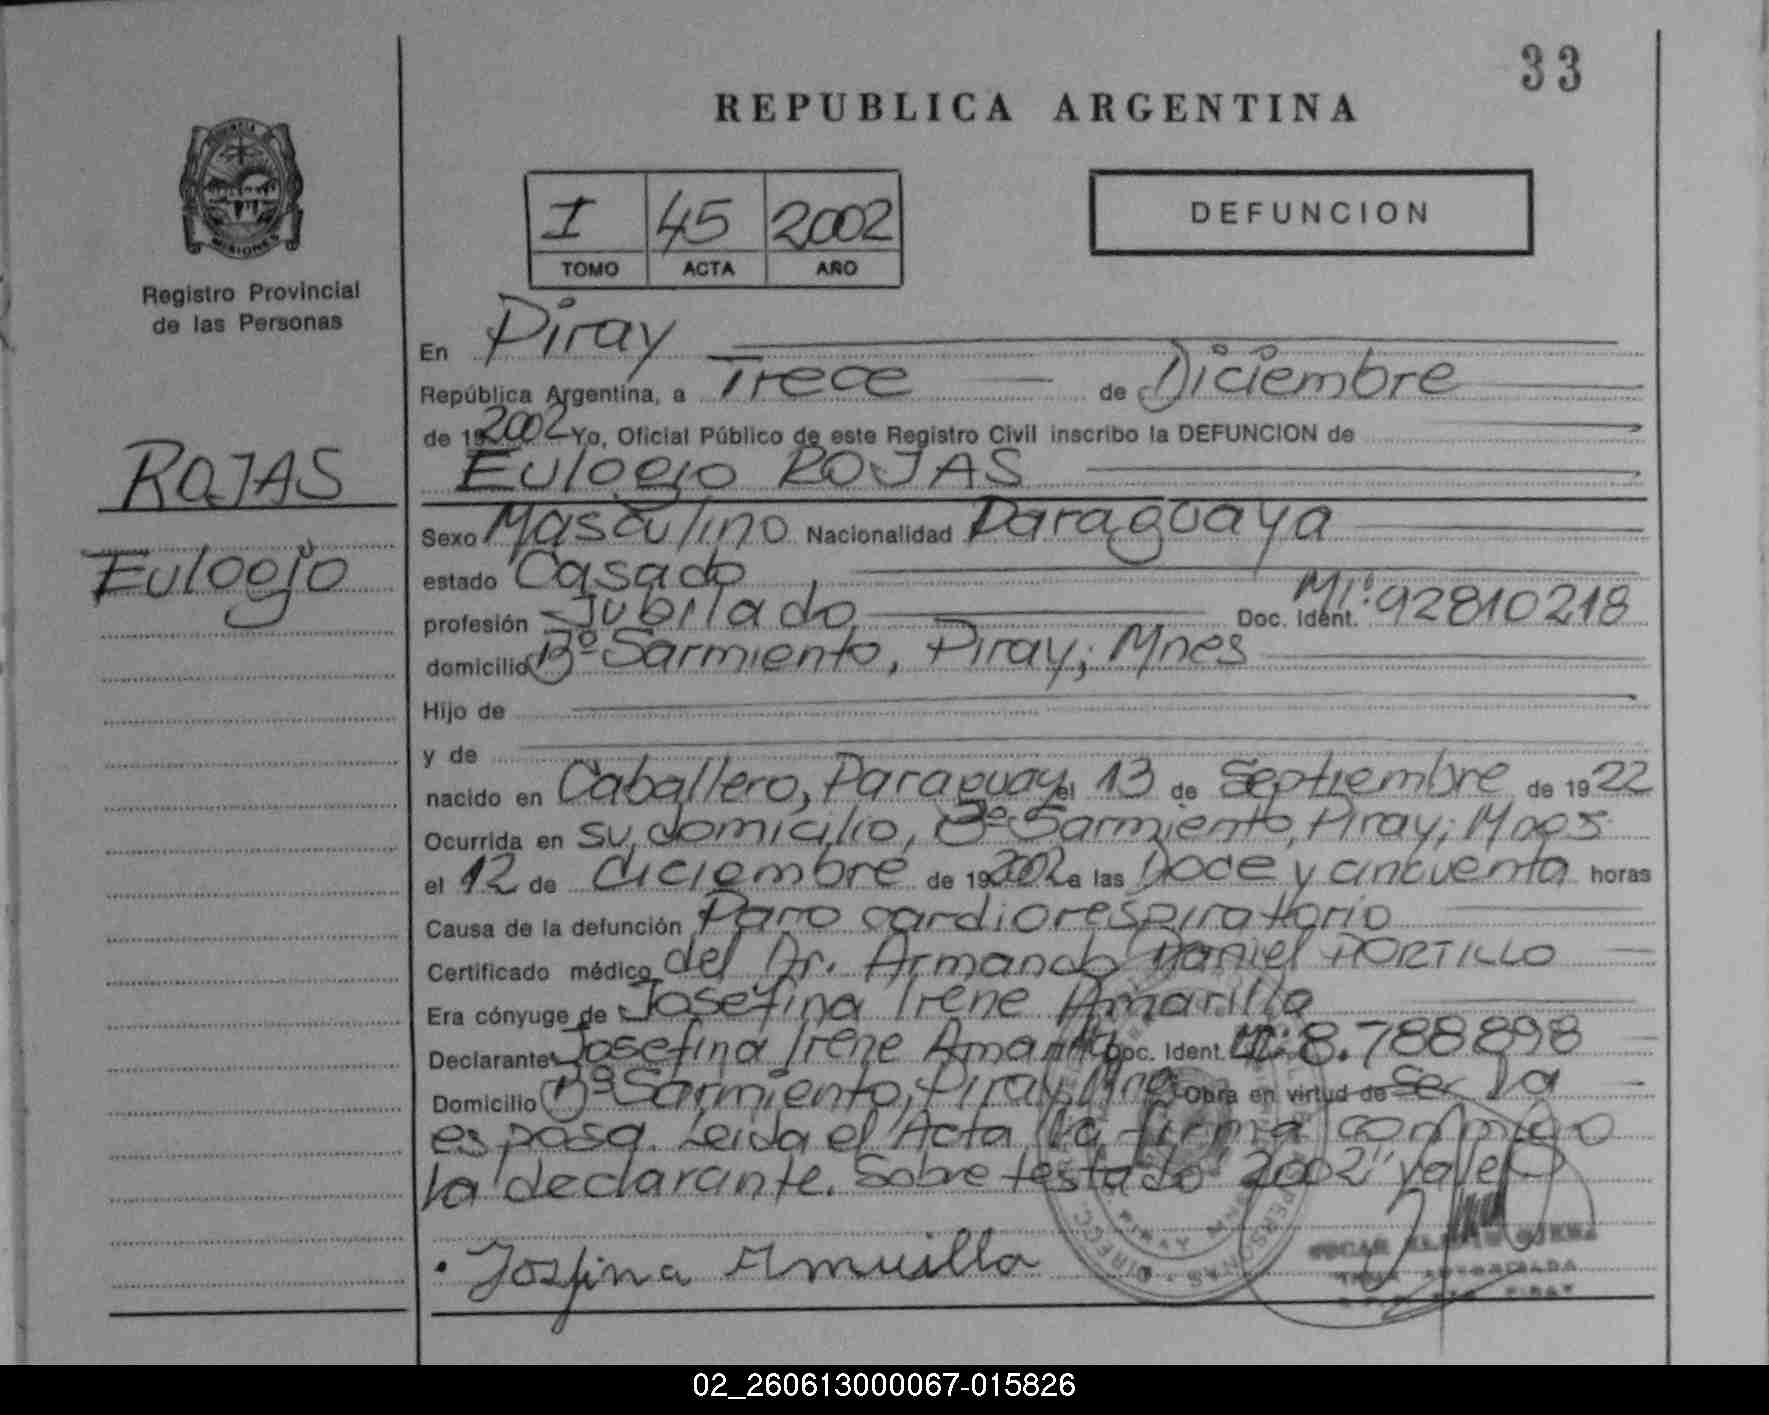 33
REPUBLICA ARGENTINA
MISIONES
Registro Provincial
de las Personas
I 45 2002
TOMO ACTA AÑO
DEFUNCION
En Piray
República Argentina, a Trece de Diciembre
de 19 2002 Yo, Oficial Público de este Registro Civil inscribo la DEFUNCION de
Eulogio ROJAS
ROJAS
Eulogio
Sexo Masculino Nacionalidad Paraguaya
estado Casado
profesión Jubilado Doc. Ident. MI: 92810218
domicilio Bº Sarmiento, Piray, Mnes
Hijo de
y de
nacido en Caballero, Paraguay el 13 de Septiembre de 1922
Ocurrida en su domicilio, Bº Sarmiento, Piray, Mnes
el 12 de diciembre de 19 2002 a las Doce y cincuenta horas
Causa de la defunción Paro cardiorespiratorio
Certificado médico del Dr. Armando Daniel PORTILLO
Era cónyuge de Josefina Irene Amarilla
Declarante Josefina Irene Amarilla Doc. Ident. 8.788898
Domicilio Bº Sarmiento, Piray, Mnes Obra en virtud de Ser la
esposa. Leida el Acta la firma conmigo
la declarante. Sobre testado "2002" vale
Josfina Amarilla
OSCAR
PIRAY
PERSONAS
02_260613000067-015826